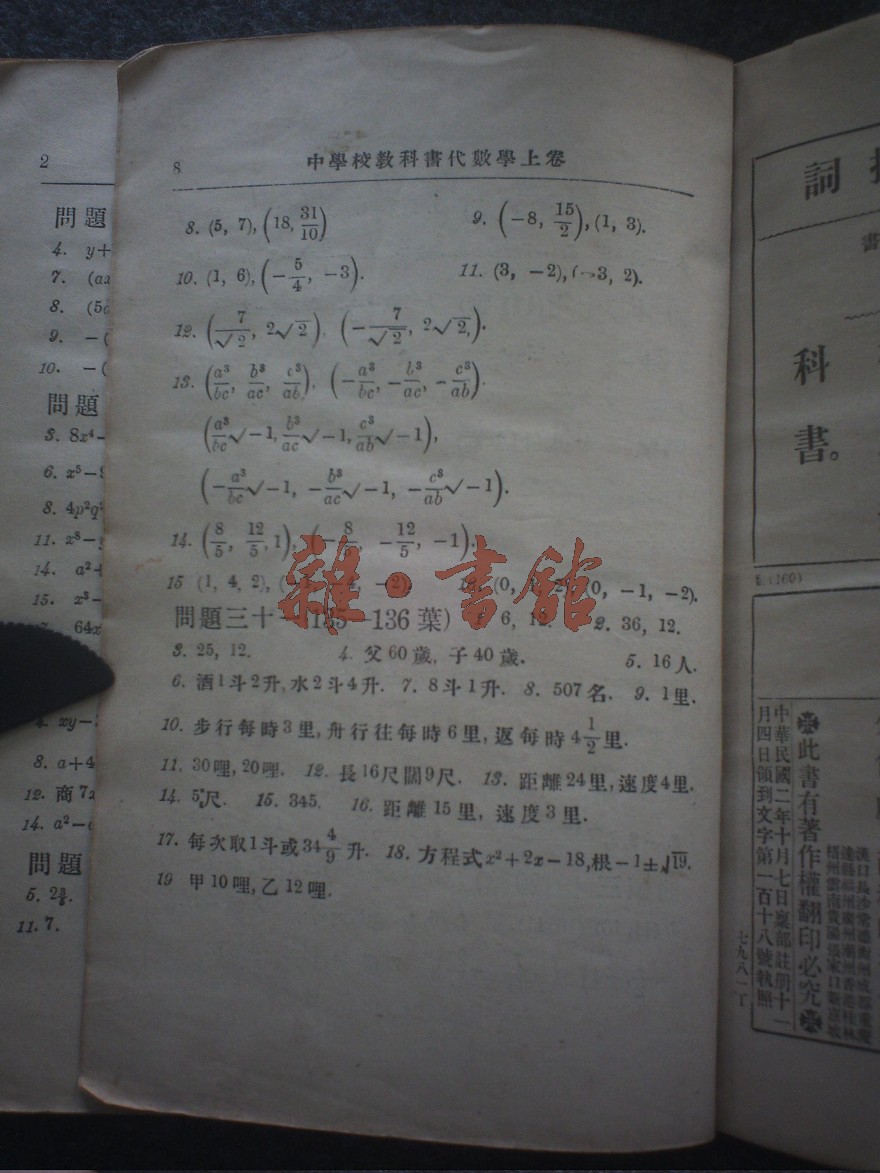 2
問題
4. y+
7. (ax
8. (5
9. −(
10. −(
問題
3. 8x⁴−
6. x⁵−
8. 4p²q²
11. x⁸−
14. a²+
15. x³−
64x
4. xy−
8. a+4
12. 商 7x
14. a²−
問題
5. 2⅜.
11. 7.
8 中學校教科書代數學上卷
8. (5, 7), (18, 31/10) 9. (−8, 15/2), (1, 3).
10. (1, 6), (−5/4, −3). 11. (3, −2), (−3, 2).
12. (7/√2, 2√2), (−7/√2, 2√2,).
13. (a³/bc, b³/ac, c³/ab), (−a³/bc, −b³/ac, −c³/ab).
(a³/bc √−1, b³/ac √−1, c³/ab √−1),
(−a³/bc √−1, −b³/ac √−1, −c³/ab √−1).
14. (8/5, 12/5, 1), (−8/5, −12/5, −1).
15 (1, 4, 2), (−2). (0, 2), (0, −1, −2).
雜·書館
問題三十一(135—136葉) 6, 12. 2. 36, 12.
3. 25, 12. 4. 父60歲, 子40歲. 5. 16人.
6. 酒1斗2升, 水2斗4升. 7. 8斗1升. 8. 507名. 9. 1里.
10. 步行每時3里, 舟行往每時6里, 返每時4 1/2里.
11. 30哩, 20哩. 12. 長16尺闊9尺. 13. 距離24里, 速度4里.
14. 5尺. 15. 345. 16. 距離15里, 速度3里.
17. 每次取1斗或34 4/9升. 18. 方程式x²+2x−18, 根−1±√19.
19 甲10哩, 乙12哩.
詞
書
科
書。
(160)
此書有著作權翻印必究
中華民國二年十月七日稟部註册十一
月四日領到文字第一百十八號執照
七九八一丁